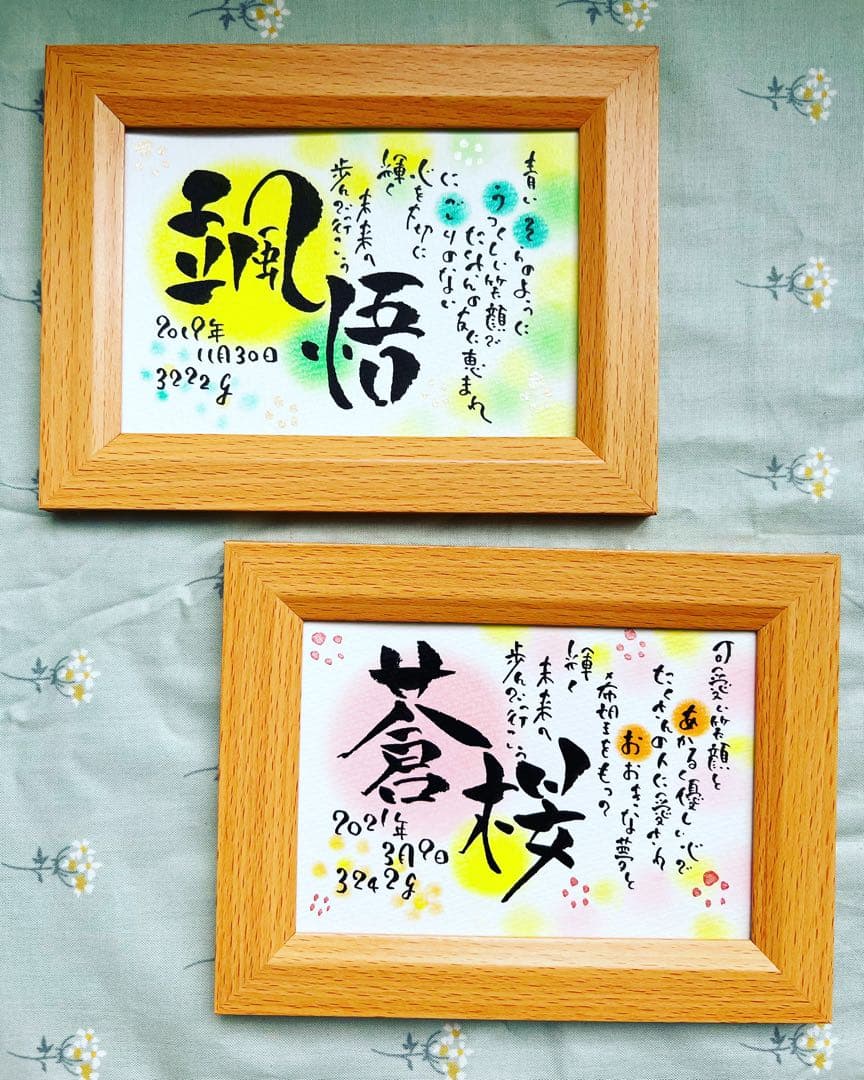 青いそらのように
うつくしい笑顔で
たくさんの友に恵まれ
にごりのない
心を大切に
輝く
未来へ
歩んで行こう
颯悟
2019年
11月30日
3222g
可愛い笑顔と
あかるく優しい心で
たくさんの人に愛され
おおきな夢と
希望をもって
輝く
未来へ
歩んで行こう
蒼桜
2021年
3月9日
3242g